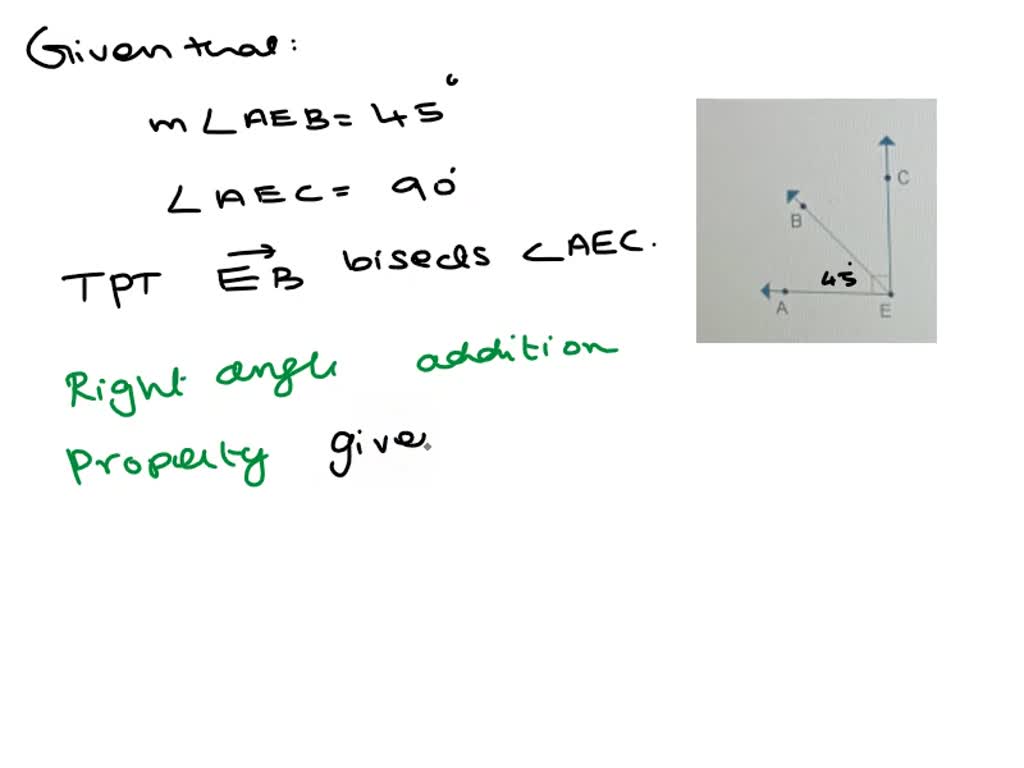 Given that:
m∠AEB = 45°
∠AEC = 90°
TPT →EB bisects ∠AEC.
Right angle addition
Property give
C
B
45°
A
E